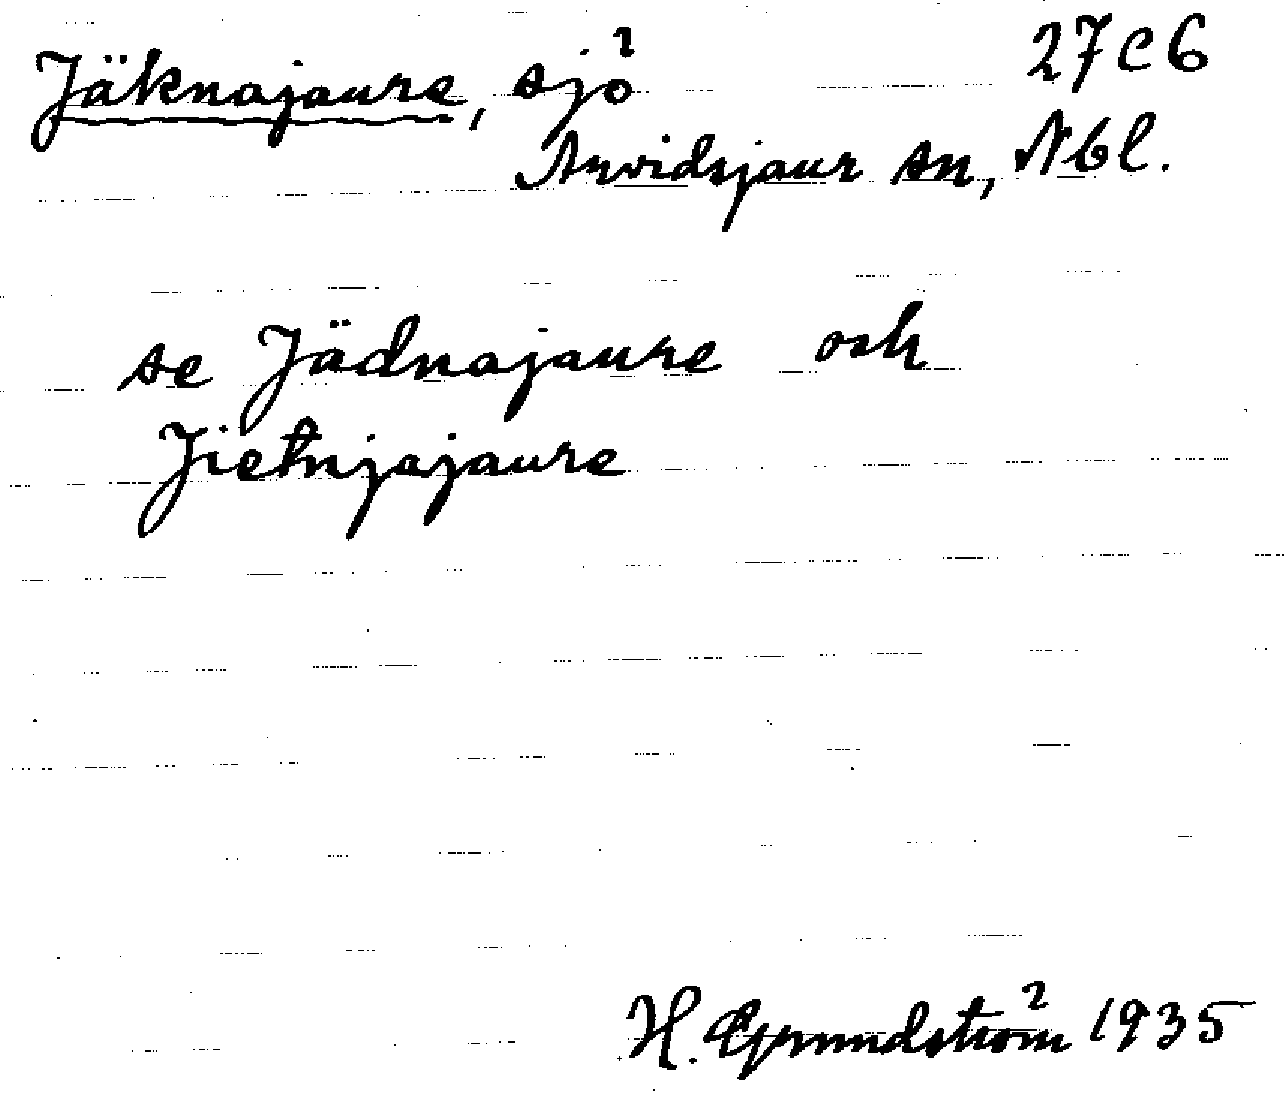 Jäknajaure, sjö 27 C 6
Arvidsjaur sn, Nbl.
se Jädnajaure och
Jietnjajaure
H. Grundström 1935